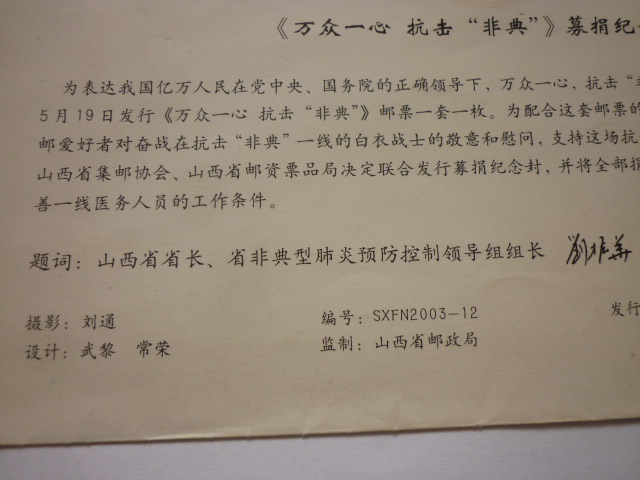 《万众一心 抗击“非典”》募捐纪
为表达我国亿万人民在党中央、国务院的正确领导下，万众一心，抗击“
5月19日发行《万众一心 抗击“非典”》邮票一套一枚。为配合这套邮票的
邮爱好者对奋战在抗击“非典”一线的白衣战士的敬意和慰问，支持这场抗
山西省集邮协会、山西省邮资票品局决定联合发行募捐纪念封，并将全部捐
善一线医务人员的工作条件。
题词：山西省省长、省非典型肺炎预防控制领导组组长 劉振華
摄影：刘通 编号：SXFN2003-12 发行
设计：武黎 常荣 监制：山西省邮政局